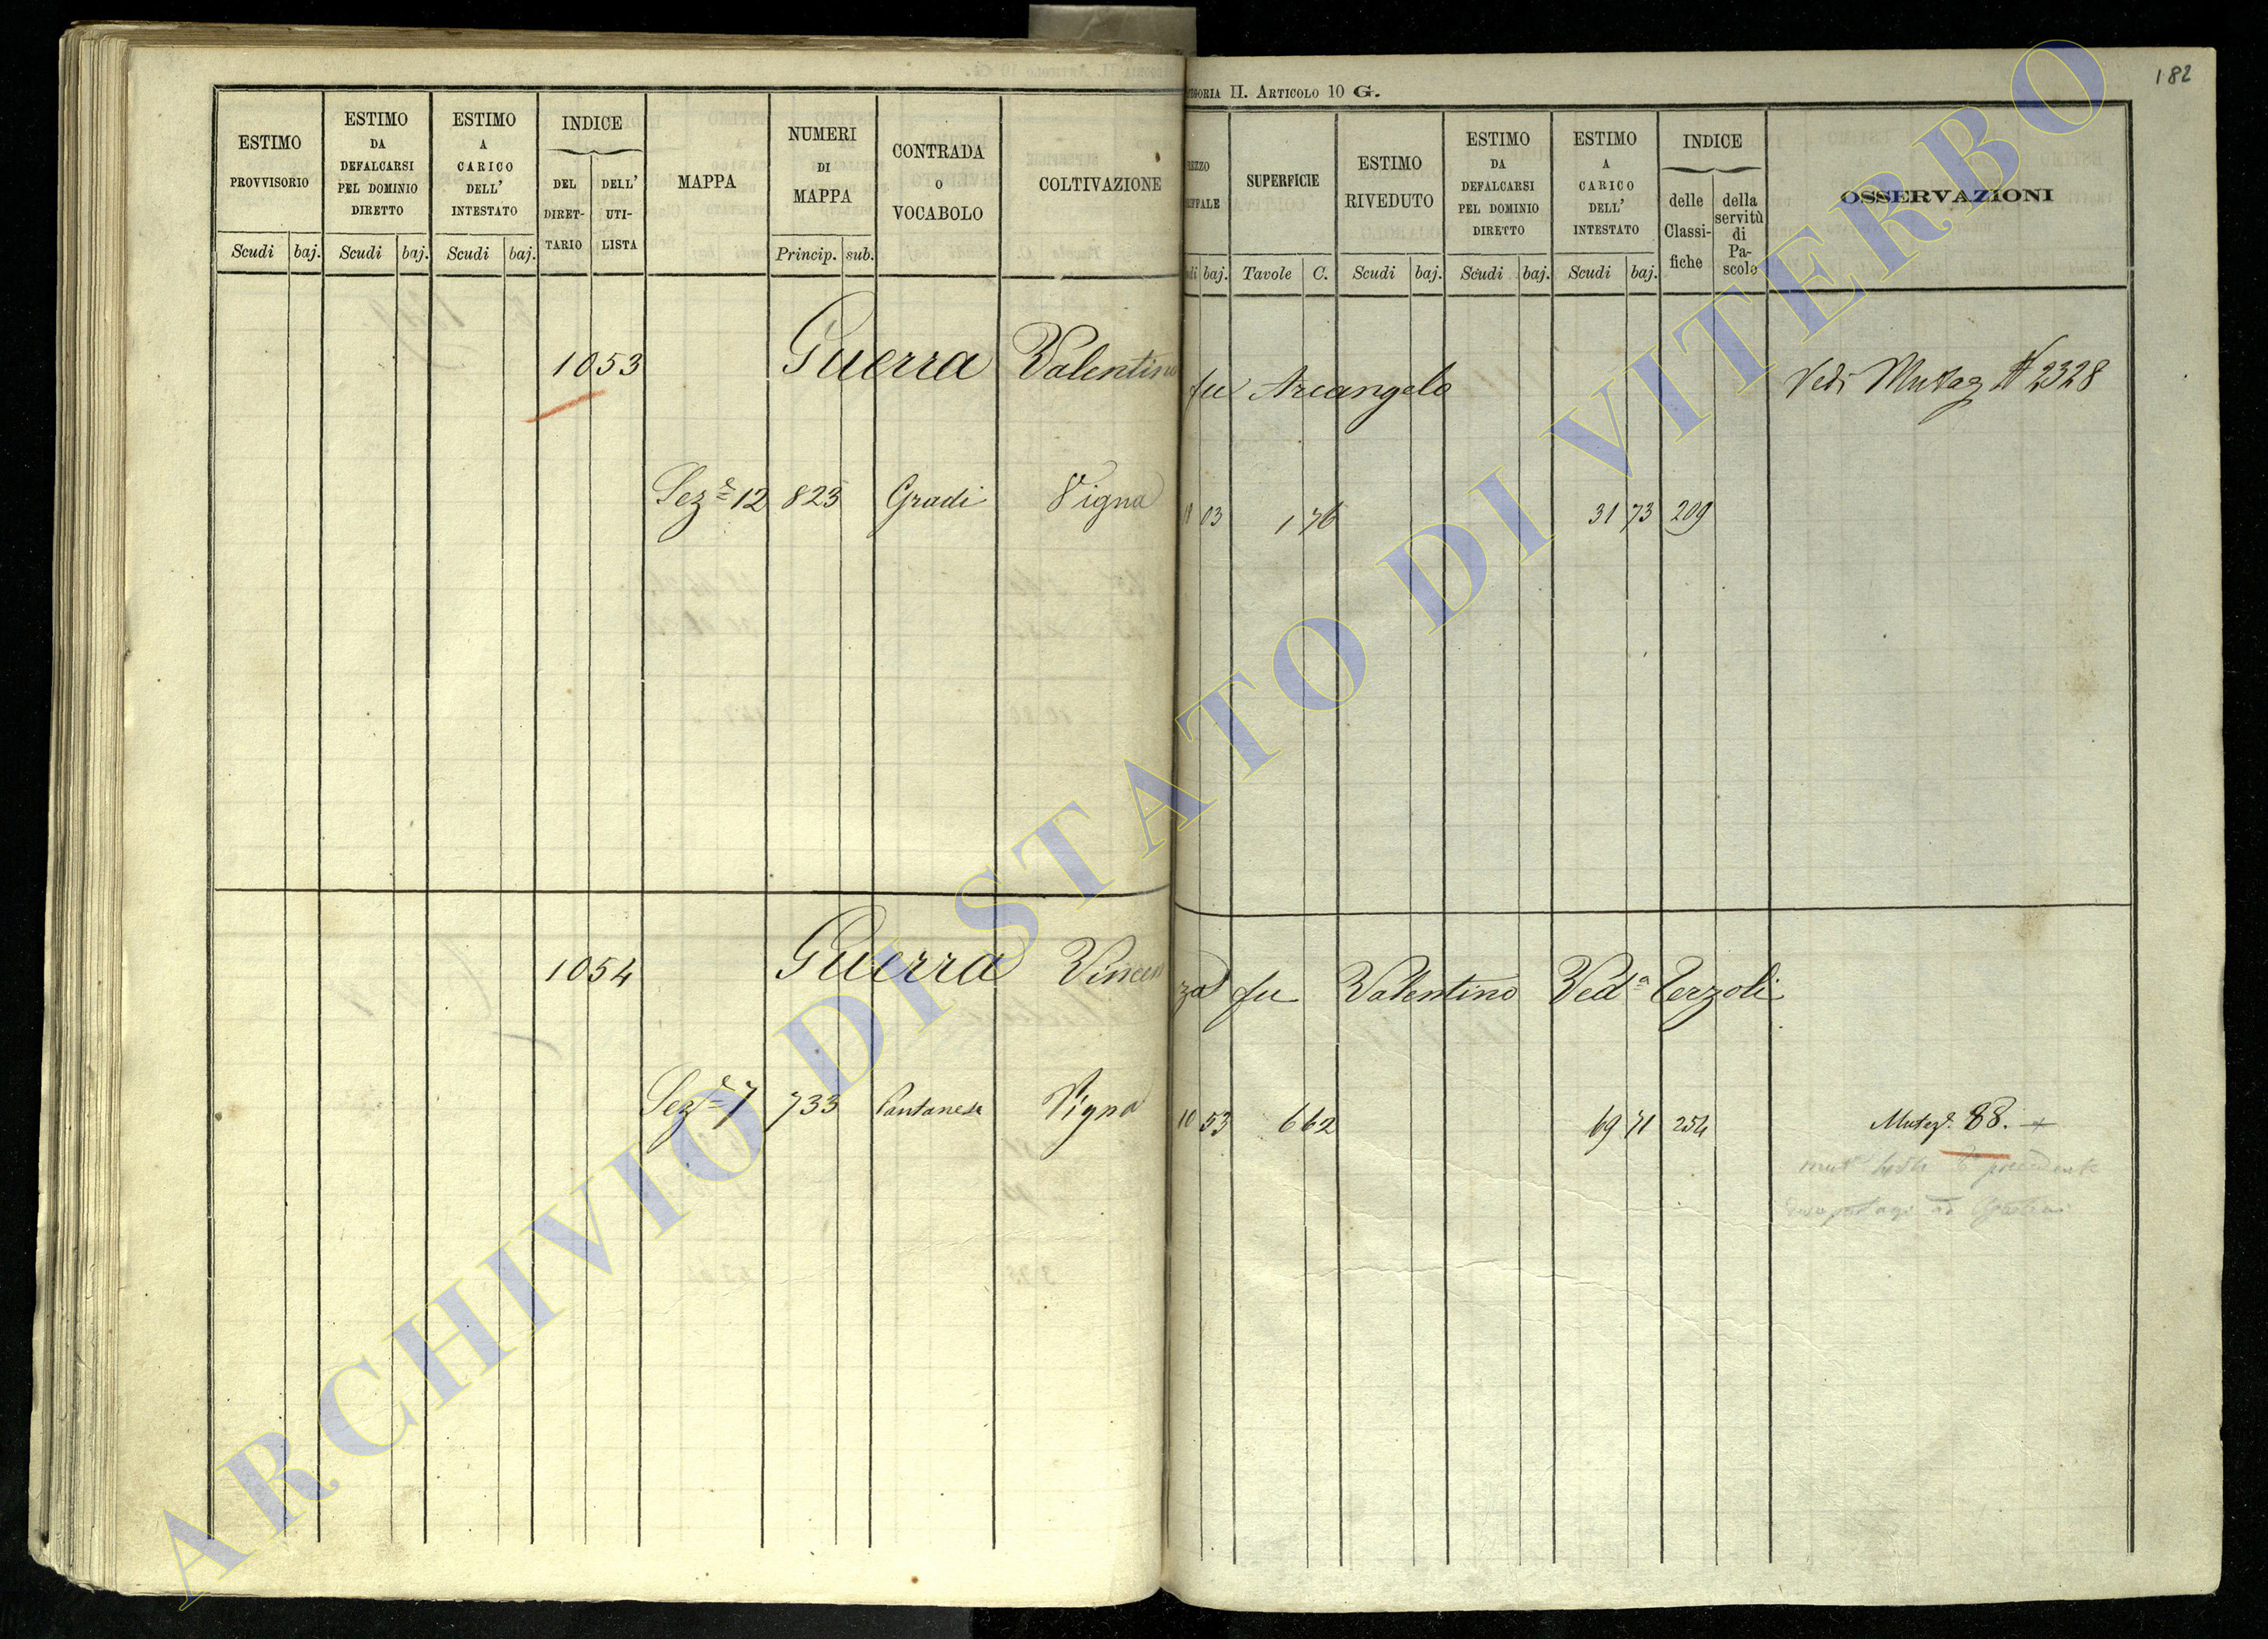 182
TEGORIA II. ARTICOLO 10 G.
ESTIMO PROVVISORIO
Scudi baj.
ESTIMO DA DEFALCARSI PEL DOMINIO DIRETTO
Scudi baj.
ESTIMO A CARICO DELL' INTESTATO
Scudi baj.
INDICE
DEL DIRETTARIO
DELL' UTILISTA
MAPPA
NUMERI DI MAPPA
Princip. sub.
CONTRADA O VOCABOLO
COLTIVAZIONE
baj.
SUPERFICIE
Tavole C.
ESTIMO RIVEDUTO
Scudi baj.
ESTIMO DA DEFALCARSI PEL DOMINIO DIRETTO
Scudi baj.
ESTIMO A CARICO DELL' INTESTATO
Scudi baj.
INDICE
delle Classifiche
della servitù di Pascolo
OSSERVAZIONI
1053 Guerra Valentino fu Arcangelo Vedi Mutaz N 2328
Sez.e 12 823 Gradi Vigna 03 1 76 31 73 209
1054 Guerra Vincenza fu Valentino Ved.a Terzoli
Sez.e 7 733 Pantanese Vigna 10 53 6 62 69 71 254 Mutaz. 88.
ARCHIVIO DI STATO DI VITERBO